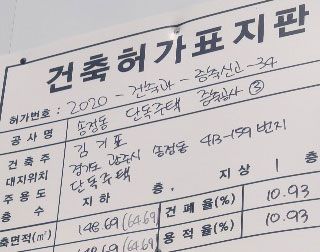 건축허가표지판
허가번호 : 2020 - 건축과 - 증축신고 - 34
공사명 송정동 단독주택 증축공사 ③
건축주 김기포
대지위치 경기도 광주시 송정동 413-159 번지
주용도 단독주택
층수 지하 층, 지상 1 층
축면적(㎡) 148.69(64.69) 건폐율(%) 10.93
148.69(64.69) 용적율(%) 10.93